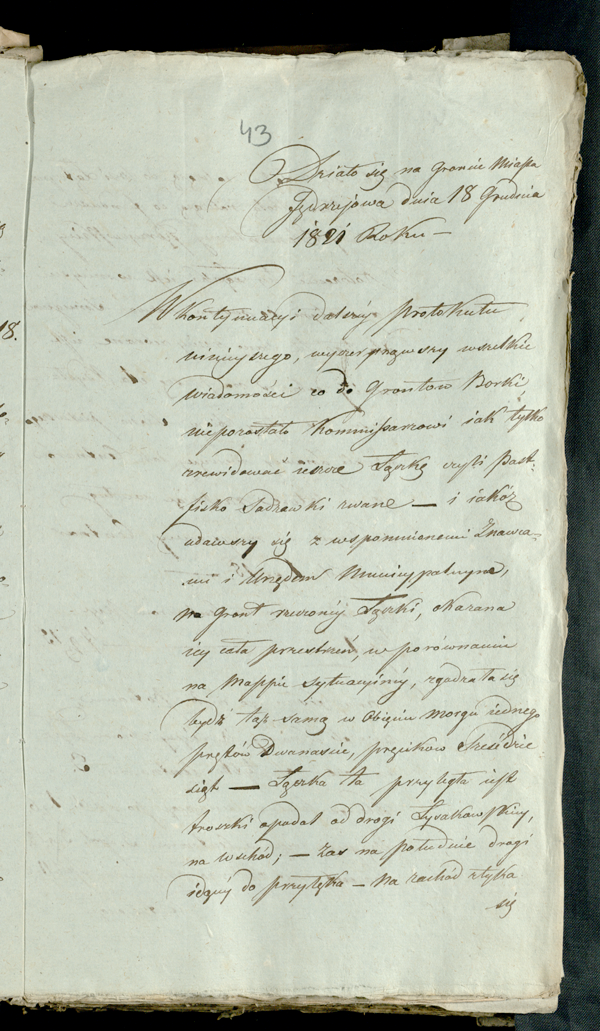 43
Działo się na Gróncie Miasta
Jędrzejowa dnia 18 Grudnia
1821 Roku —
W kontynuacyi dalszéy protokułu
niniejszego, wyczerpnąwszy wszelkie
wiadomości co do Grontow Borki
niepozostało Kommissarzowi iak tylko
zrewidować ieszcze Łączkę czyli Past-
fisko Sadzawki zwane — i iakóż
udawszy się z wspomnionemi Znawca-
mi i Urzędem Municypalnym,
na Gront rzeczonéy Łączki, okazana
iéy cała przestrzeń, w porównaniu
na Mappie sytuacyinéy, zgadzała się
bydź taż samą w Obięciu morgu iednego
prętów Dwanaście, pręcikow Sześćdzie
siąt — Łączka ta przyległa iest
troszki opodal od drogi Łysakowskiey,
na wschód; — Zas na południe drogi
idącéy do przyłęka — na zachód styka
się